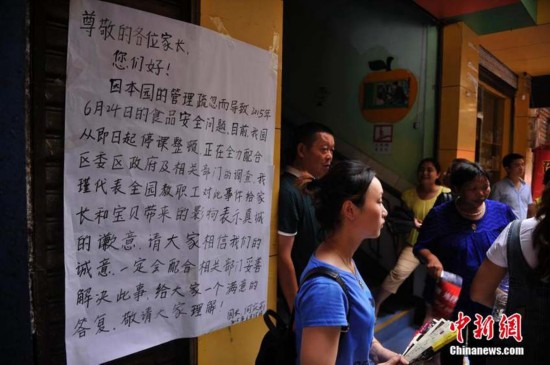 尊敬的各位家长,
您们好!
因本园的管理疏忽而导致2015年
6月24日的食品安全问题,目前我园
从即日起停课整顿,正在全力配合
区委区政府及相关部门的调查,我
谨代表全园教职工对此事件给家
长和宝贝带来的影响表示真诚
的歉意,请大家相信我们的
诚意,一定全配合相关部门妥善
解决此事,给大家一个满意的
答复,敬请大家理解!
中新网
Chinanews.com